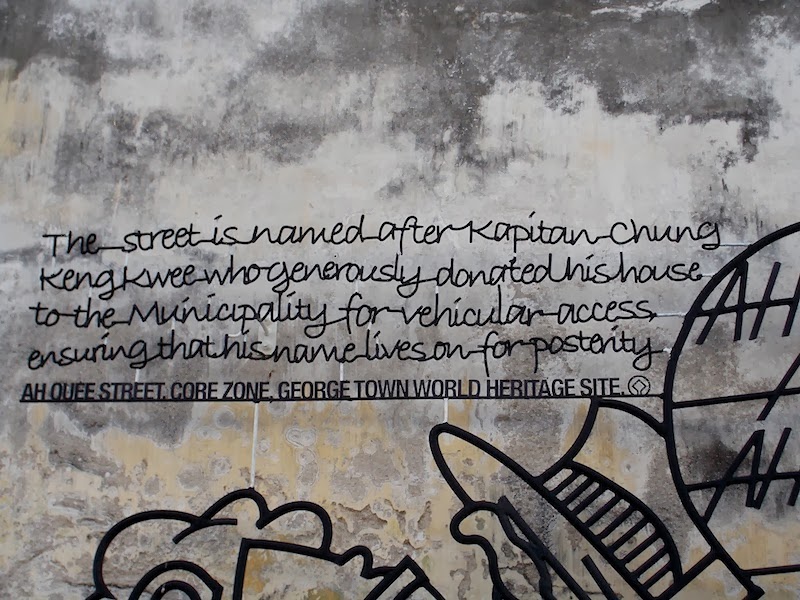 The street is named after Kapitan Chung
Keng Kwee who generously donated his house
to the Municipality for vehicular access,
ensuring that his name lives on for posterity
AH QUEE STREET. CORE ZONE, GEORGE TOWN WORLD HERITAGE SITE.
AH
AH